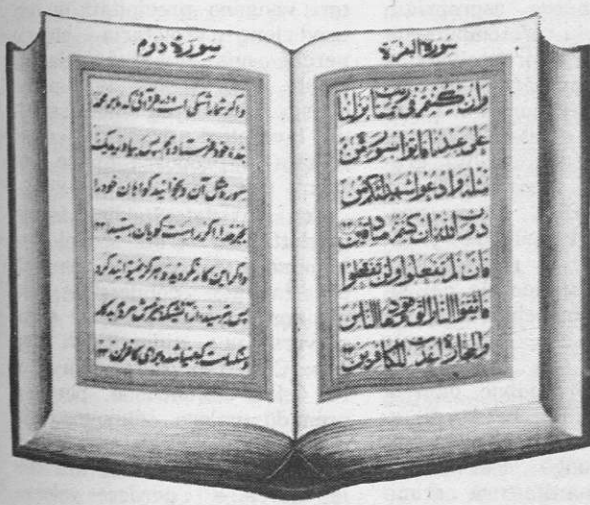 سورة البقرة
وان كنتم في ريب مما نزلنا
على عبدنا فاتوا بسورة من
مثله وادعوا شهداءكم من
دون الله ان كنتم صادقين
فان لم تفعلوا ولن تفعلوا
فاتقوا النار التي وقودها الناس
والحجارة اعدت للكافرين
سورة دوم
واگر شما در شكی از قرآنی كه ما بر محمد
بنده خود فرستاده‌ایم پس بیاورید یک
سوره مثل آن و بخوانید گواهان خود را
بجز خدا اگر راست گویان هستید
واگر این كار نكردید و هرگز نمیتوانید كرد
پس بترسید از آتشیكه
كه مهیا شده برای كافران